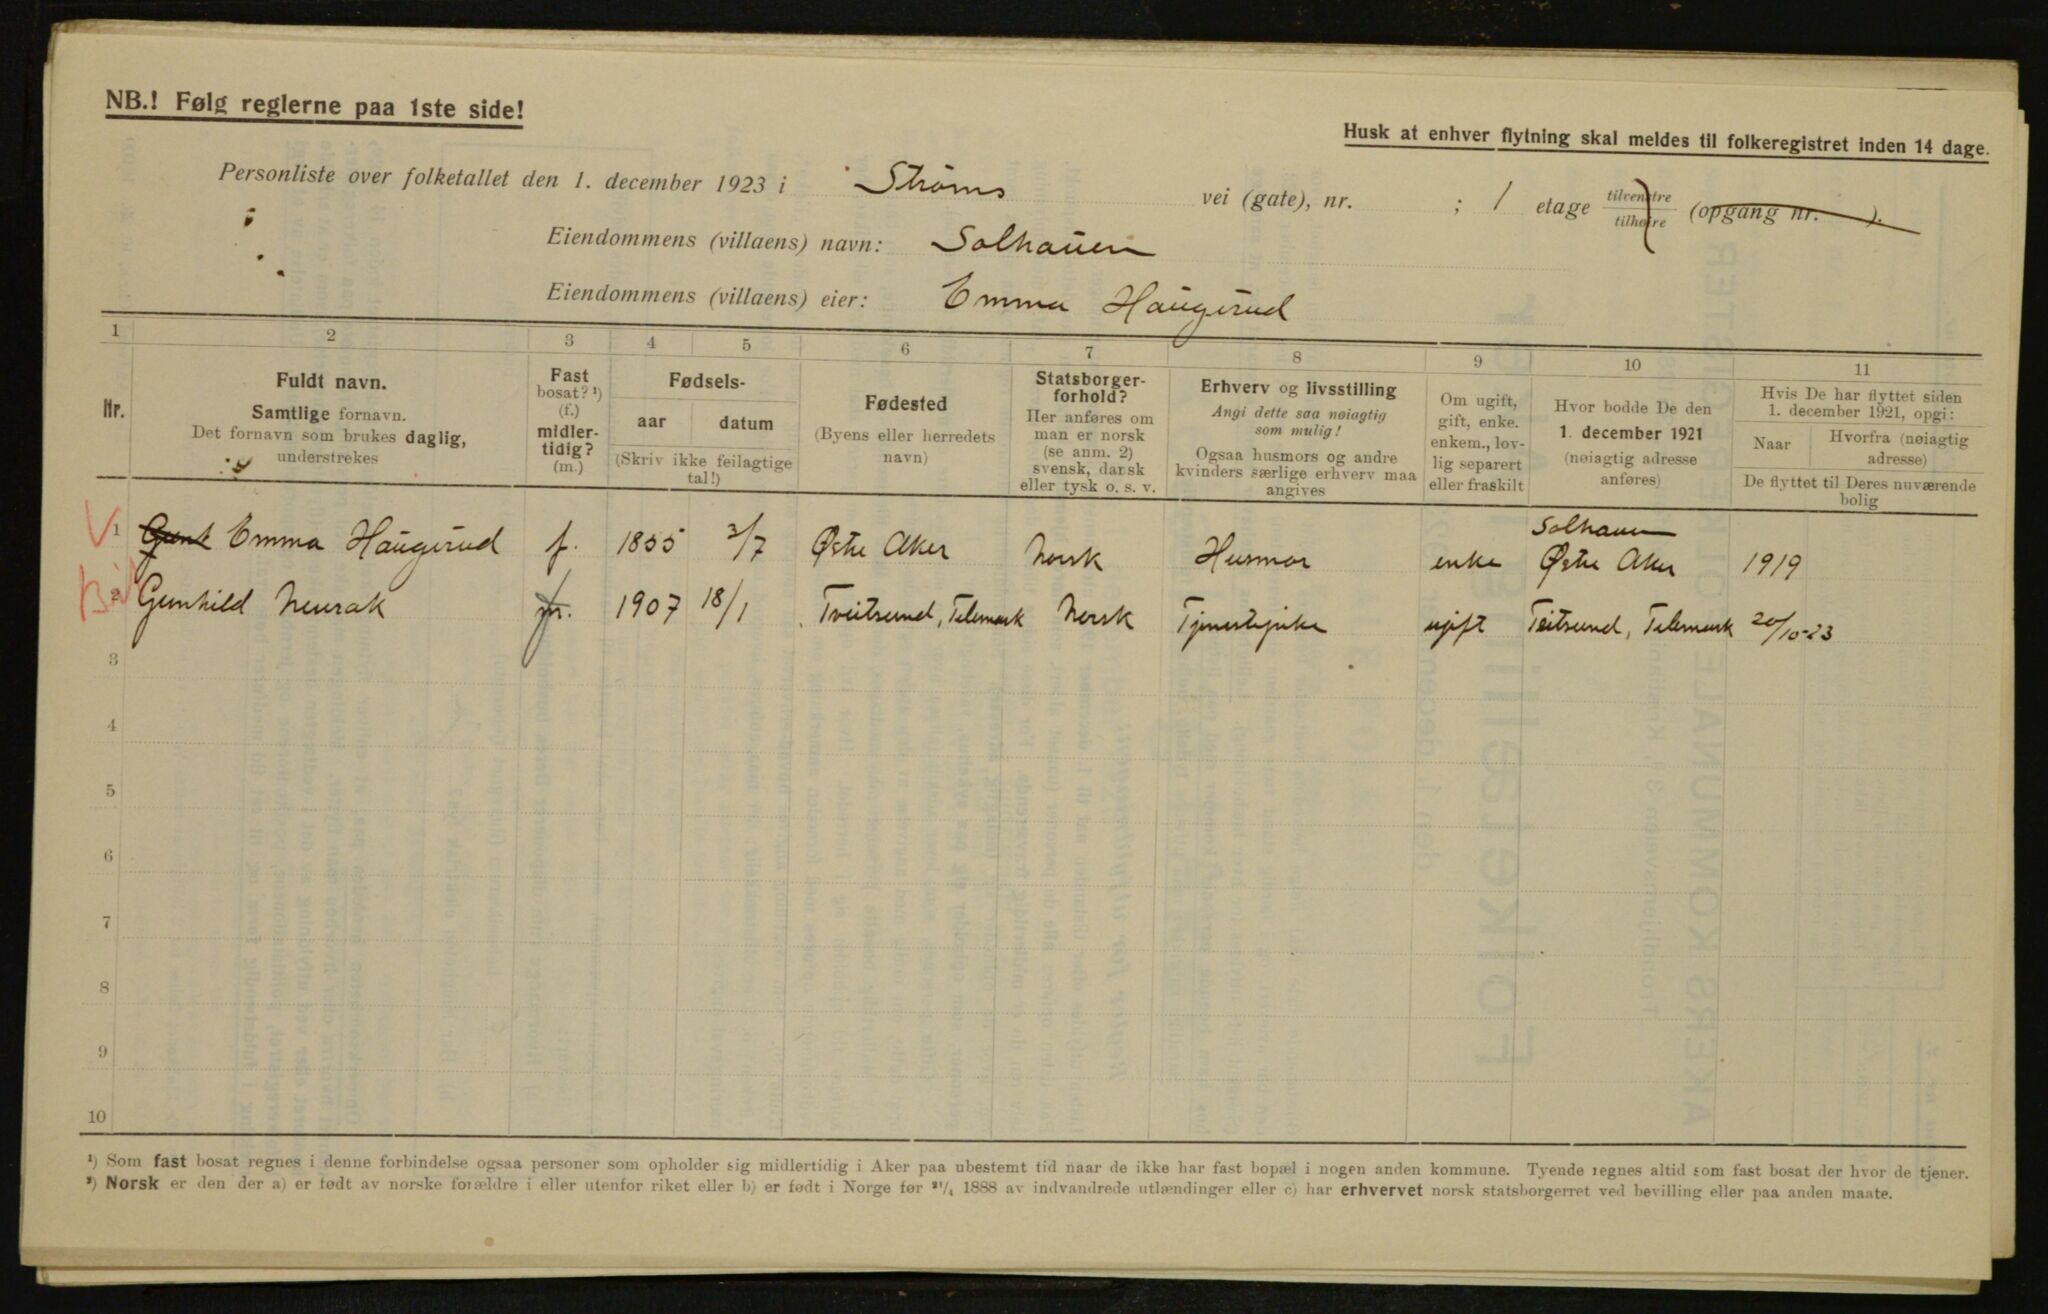 NB.! Følg reglerne paa 1ste side!
Husk at enhver flytning skal meldes til folkeregistret inden 14 dage.
Personliste over folketallet den 1. december 1923 i Strøms vei (gate), nr. ; 1 etage tilvenstre tilhøire (opgang nr. ).
Eiendommens (villaens) navn: Solhauen
Eiendommens (villaens) eier: Emma Haugerud
1 2 3 4 5 6 7 8 9 10 11
Nr.
Fuldt navn.
Samtlige fornavn.
Det fornavn som brukes daglig,
understrekes
Fast
bosat? ¹)
(f.)
midler-
tidig?
(m.)
Fødsels-
aar datum
(Skriv ikke feilagtige
tal!)
Fødested
(Byens eller herredets
navn)
Statsborger-
forhold?
Her anføres om
man er norsk
(se anm. 2)
svensk, dansk
eller tysk o. s. v.
Erhverv og livsstilling
Angi dette saa nøiagtig
som mulig!
Ogsaa husmors og andre
kvinders særlige erhverv maa
angives
Om ugift,
gift, enke.
enkem., lov-
lig separert
eller fraskilt
Hvor bodde De den
1. december 1921
(nøiagtig adresse
anføres)
Hvis De har flyttet siden
1. december 1921, opgi:
Naar Hvorfra (nøiagtig
adresse)
De flyttet til Deres nuværende
bolig
Solhauen
1 Emma Haugerud f. 1855 3/7 Østre Aker Norsk Husmor enke Østre Aker 1919
2 Gunhild Neurak 1907 18/1 Tveitsund, Telemark Norsk Tjenestepike ugift Teitsund, Telemark 20/10-23
3
4
5
6
7
8
9
10
¹) Som fast bosat regnes i denne forbindelse ogsaa personer som opholder sig midlertidig i Aker paa ubestemt tid naar de ikke har fast bopæl i nogen anden kommune. Tyende regnes altid som fast bosat der hvor de tjener.
²) Norsk er den der a) er født av norske forældre i eller utenfor riket eller b) er født i Norge før ²¹/₄ 1888 av indvandrede utlændinger eller c) har erhvervet norsk statsborgerret ved bevilling eller paa anden maate.